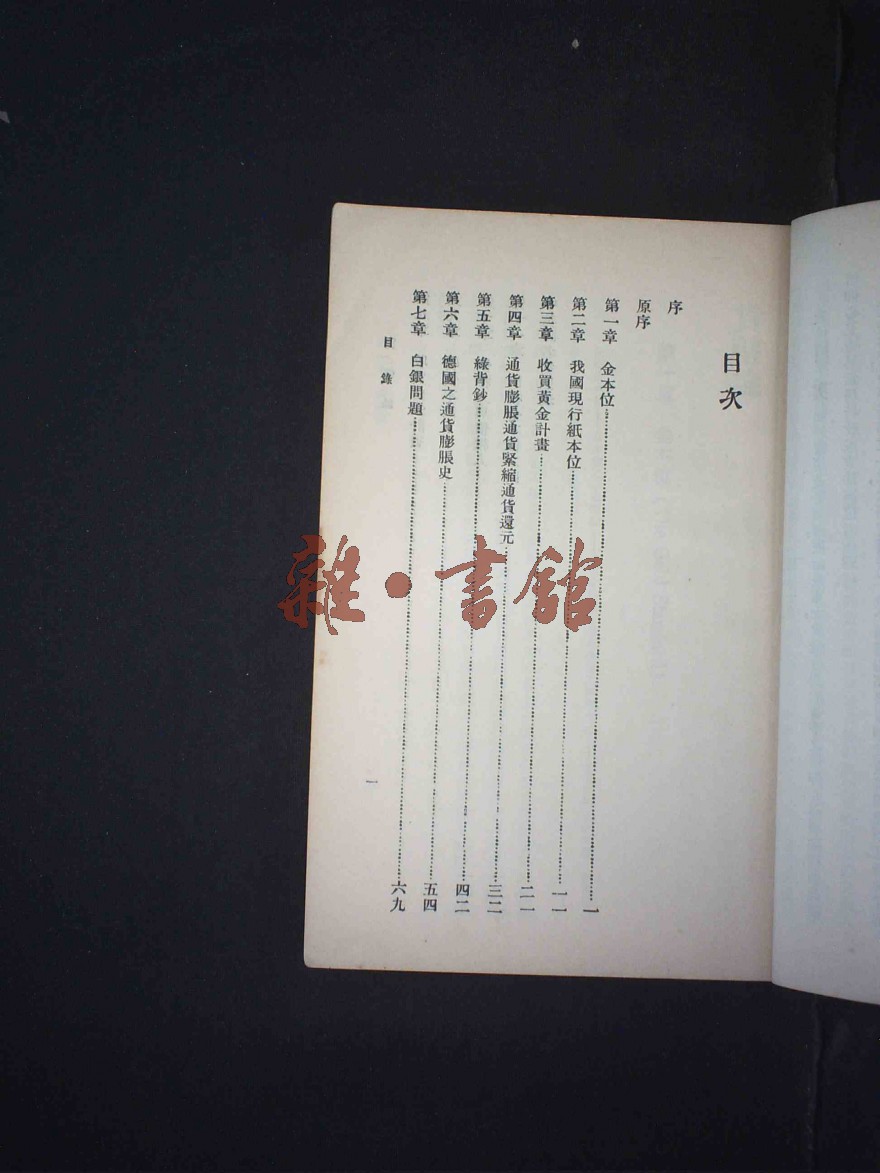 目次
序
原序
第一章 金本位……一
第二章 我國現行紙本位……一一
第三章 收買黃金計畫……二一
第四章 通貨膨脹通貨緊縮通貨還元……三二
第五章 綠背鈔……四二
第六章 德國之通貨膨脹史……五四
第七章 白銀問題……六九
目錄
一
雜·書館